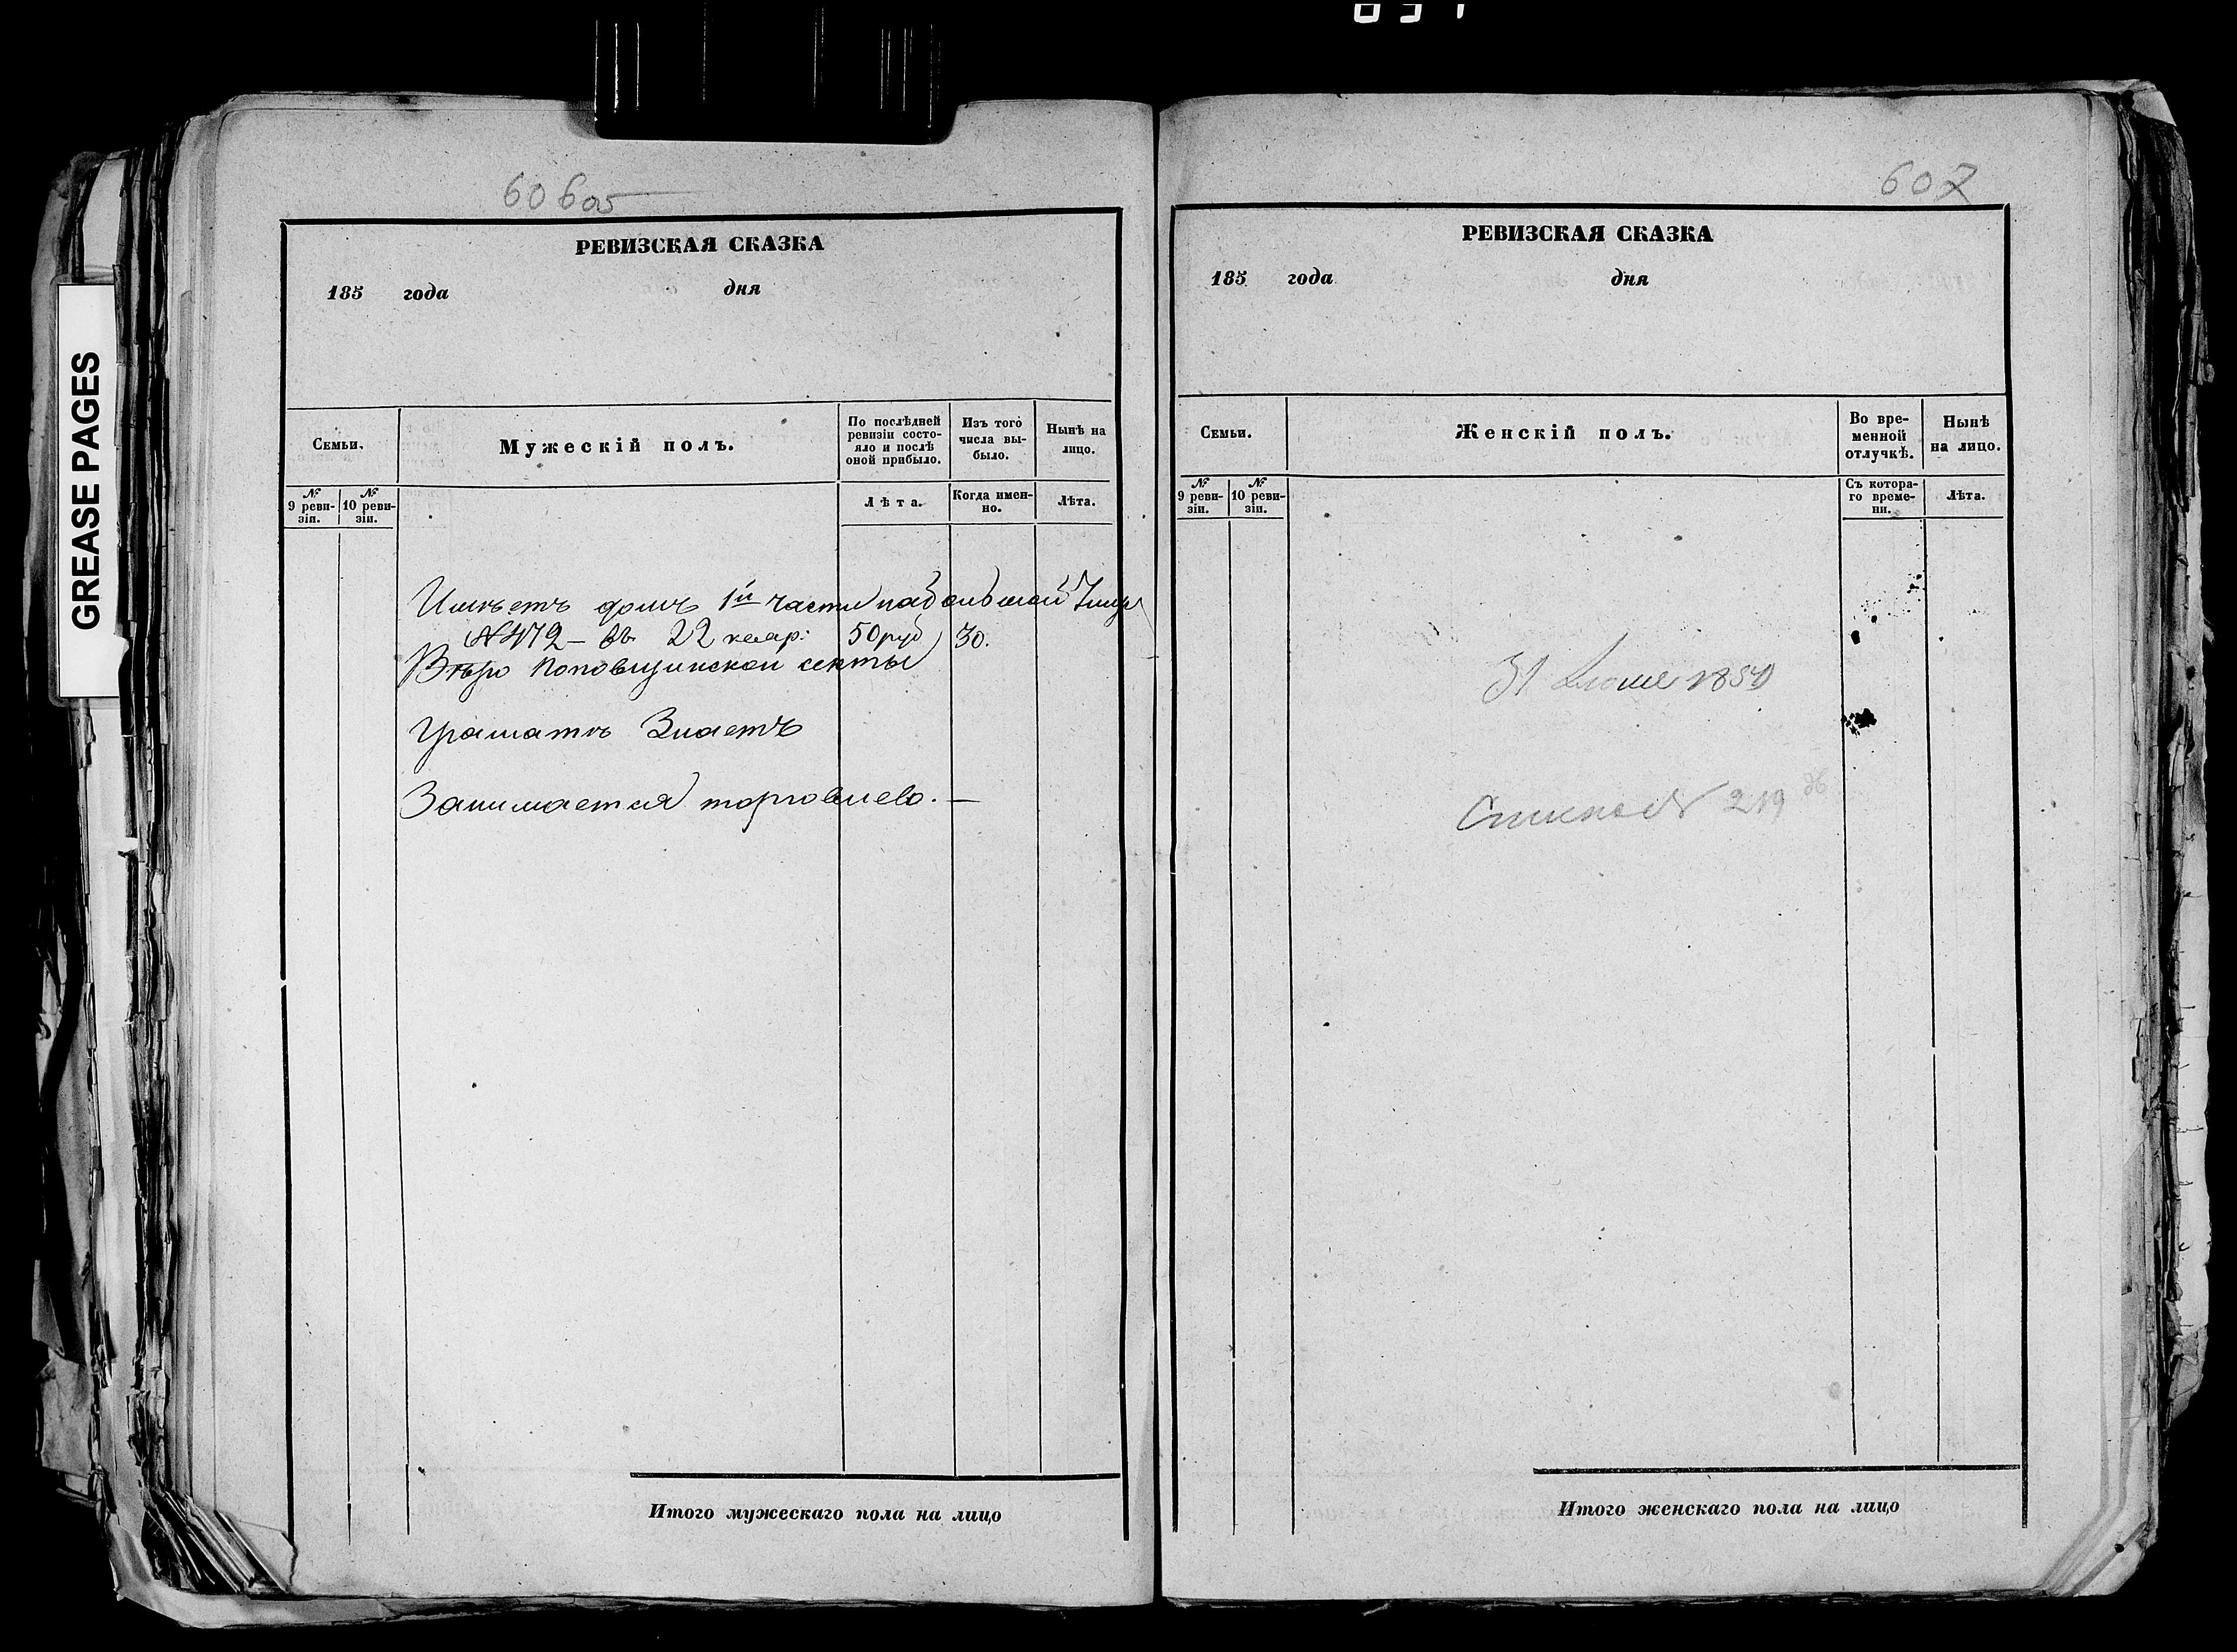 GREASE PAGES
606об
РЕВИЗСКАЯ СКАЗКА
185 года дня
Семьи.
Мужескій полъ.
По послѣдней ревизіи состояло и послѣ оной прибыло.
Изъ того числа выбыло.
Нынѣ на лицо.
№ 9 ревизіи.
№ 10 ревизіи.
Лѣта.
Когда именно.
Лѣта.
Имѣетъ домъ 1й части на большой Улицѣ
№ 472 – въ 22 квар: 50 руб 30.
Вѣры Поповщинской секты
Граматѣ Знаетъ
Занимается торговлею. —
Итого мужескаго пола на лицо
607
РЕВИЗСКАЯ СКАЗКА
185 года дня
Семьи.
Женскій полъ.
Во временной отлучкѣ.
Нынѣ на лицо.
№ 9 ревизіи.
№ 10 ревизіи.
Съ котораго времени.
Лѣта.
31
219
Итого женскаго пола на лицо